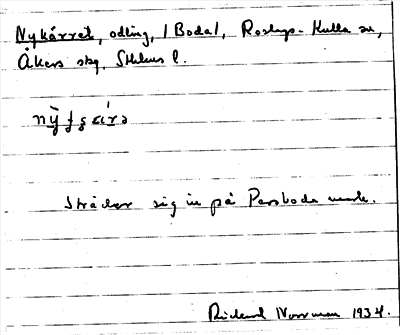 Nykärret, odling, (Boda), Rostorps-Kulla su,
Åkers skg, Sthlms l.
Sträcker sig in på Persboda mark.
Rickard Norrman 1934.